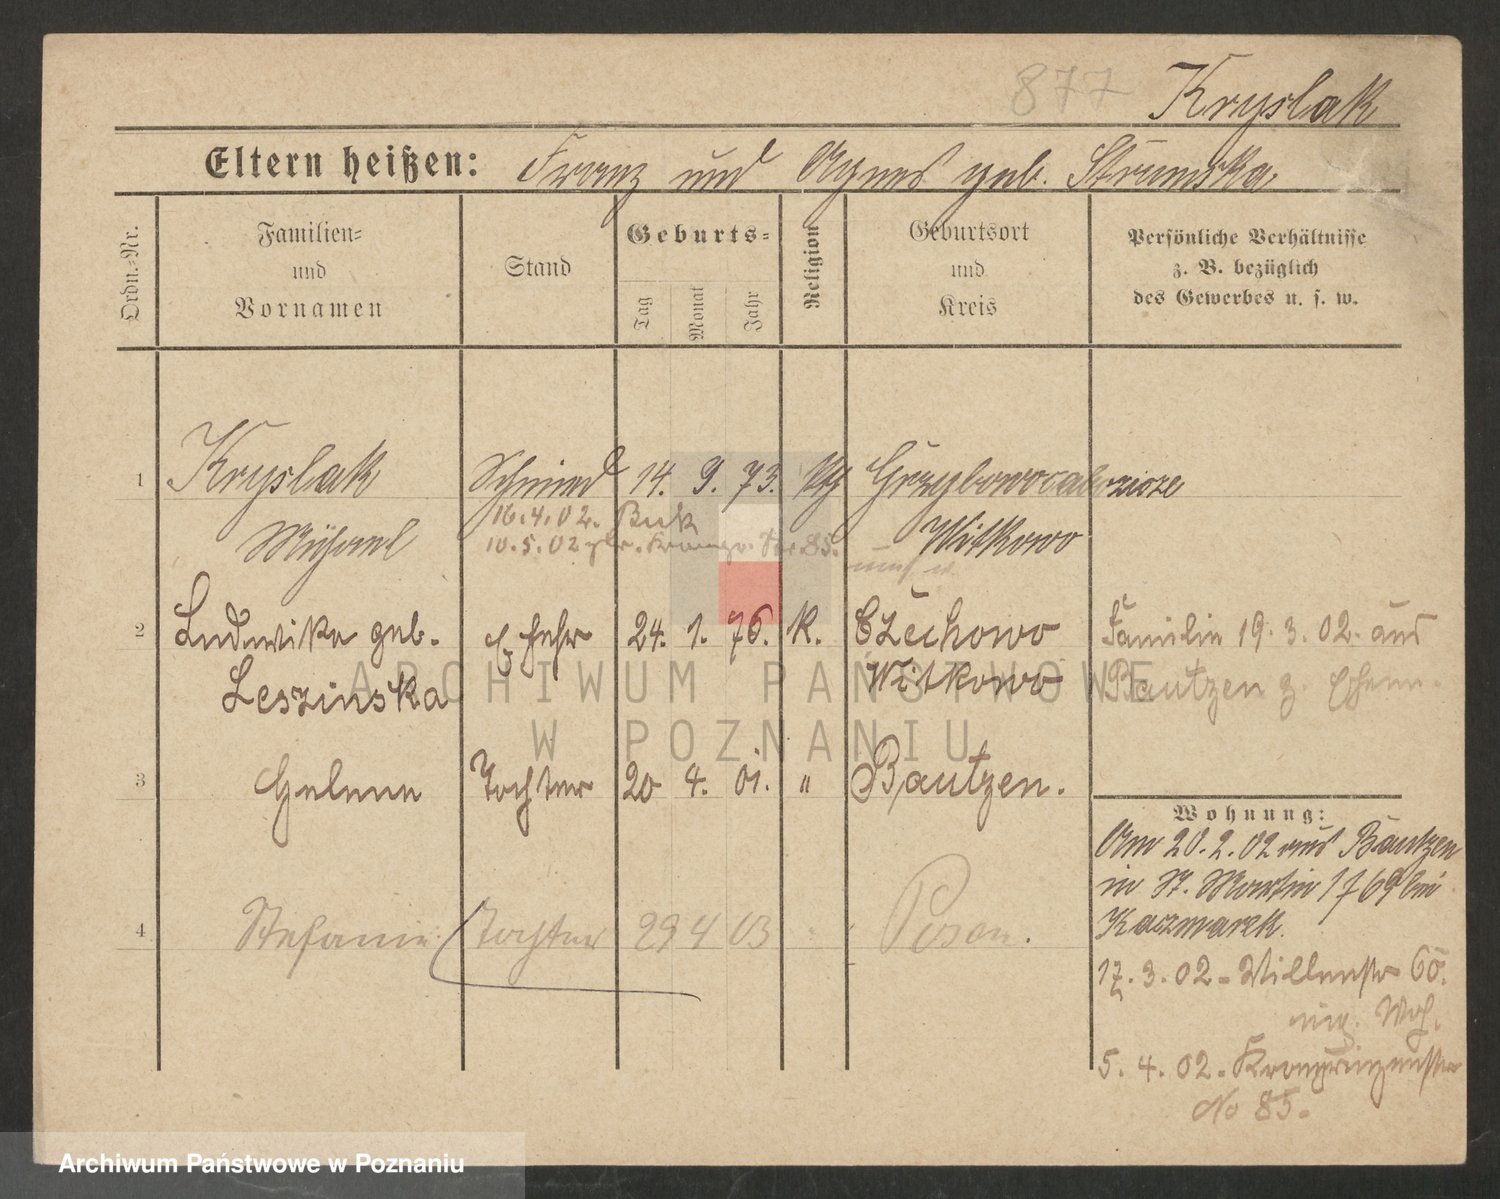 877 Kryslak
Eltern heißen: Franz und Agnes geb. Strumska
Ordn.-Nr.
Familien-
und
Vornamen
Stand
Geburts-
Tag
Monat
Jahr
Religion
Geburtsort
und
Kreis
Persönliche Verhältnisse
z. B. bezüglich
des Gewerbes u. s. w.
1 Kryslak Schmied 14. 9. 73. kth
16.4.02. Buk
Michael 10.5.02 Kronpr. Str. 85. Witkowo
2 Ludwika geb. Ehefr 24. 1. 76. K. Czechowo Familie 19. 3. 02. aus
Leszinska Witkowo Bautzen z. Ehem.
3 Helene Tochter 20 4. 01. " Bautzen.
Wohnung:
Am 20.2.02 aus Bautzen
in St. Martin 1769 bei
Kaczmarek.
4 Stefanie Tochter 29 4 03 " Posen.
17. 3. 02 - 60.
Woh.
5. 4. 02. Kronprinzenstr
No 85.
ARCHIWUM PAŃSTWOWE
W POZNANIU
Archiwum Państwowe w Poznaniu